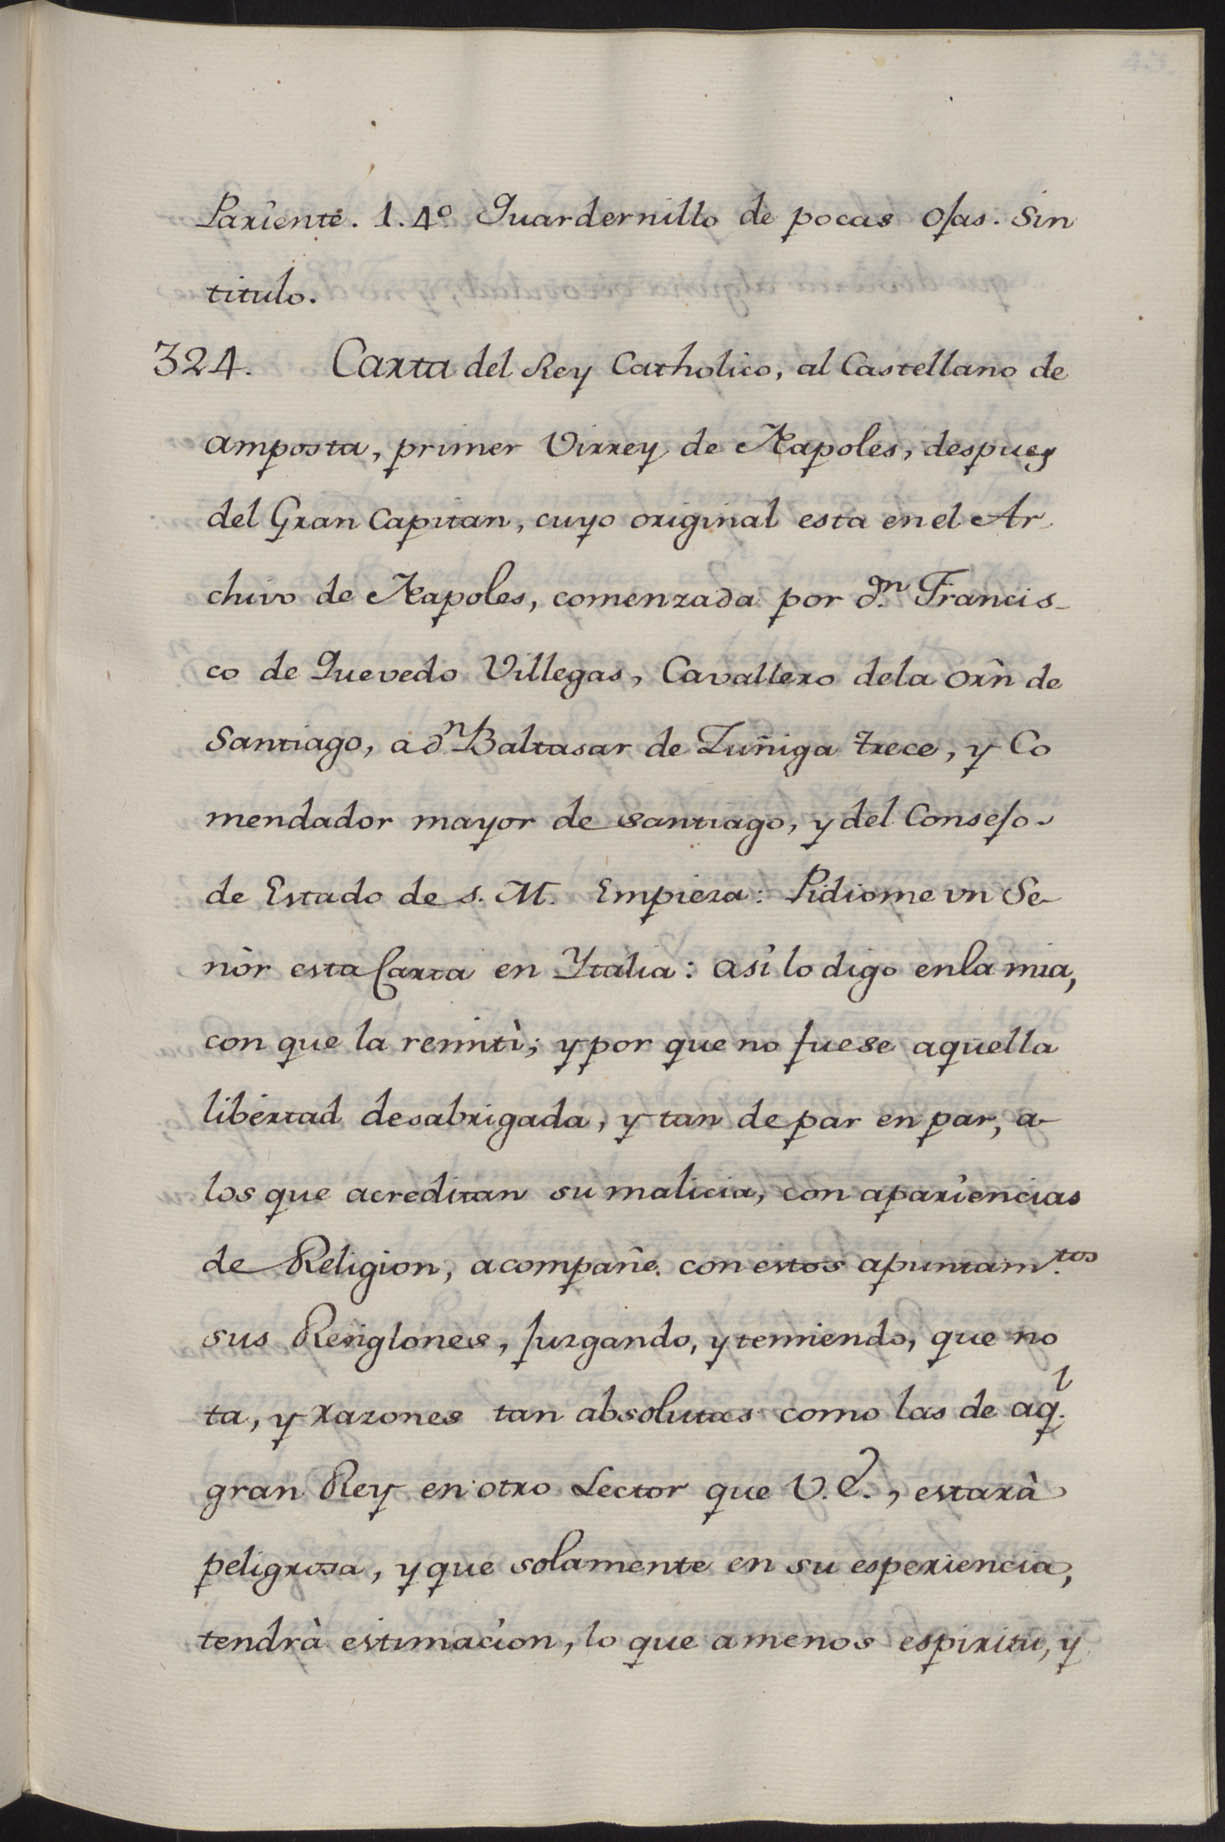 Pariente. 1. 4º Quardernillo de pocas ojas. Sin
titulo.
324. Carta del Rey Catholico, al Castellano de
amposta, primer Virrey de Napoles, despues
del Gran Capitan, cuyo original esta en el Ar
chivo de Napoles, comenzada por dn. Francis-
co de Quevedo Villegas, Cavallero dela orn̂ de
Santiago, a dn. Baltasar de Zuñiga trece, y Co
mendador mayor de Santiago, y del Consejo
de Estado de S. M. Empieza: Pidiome vn Se-
nòr esta Carta en Ytalia: asi lo digo en la mia,
con que la remitì; y por que no fuese aquella
libertad desabrigada, y tan de par en par, a
los que acreditan su malicia, con apariencias
de Religion, acompañe con estos apuntam.tos
sus Renglones, juzgando, y temiendo, que no
ta, y razones tan absolutas como las de aq.l
gran Rey en otro Lector que V. E., estarà
peligrosa, y que solamente en su esperiencia,
tendrà estimacion, lo que a menos espiritu, y